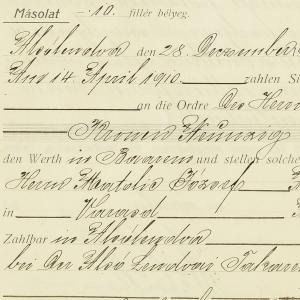 Másolat — 10. fillér bélyeg.
Alsólendva den 28. Dezember
And 14. April 1910. zahlen Si
an die Ordre Der Herr
Kronen Neunzig
den Werth in Baarem und stellen solche
Herrn Matolic József
in Varasd
Zahlbar in Alsólendva
bei Der Alsó Lendvai Takaré